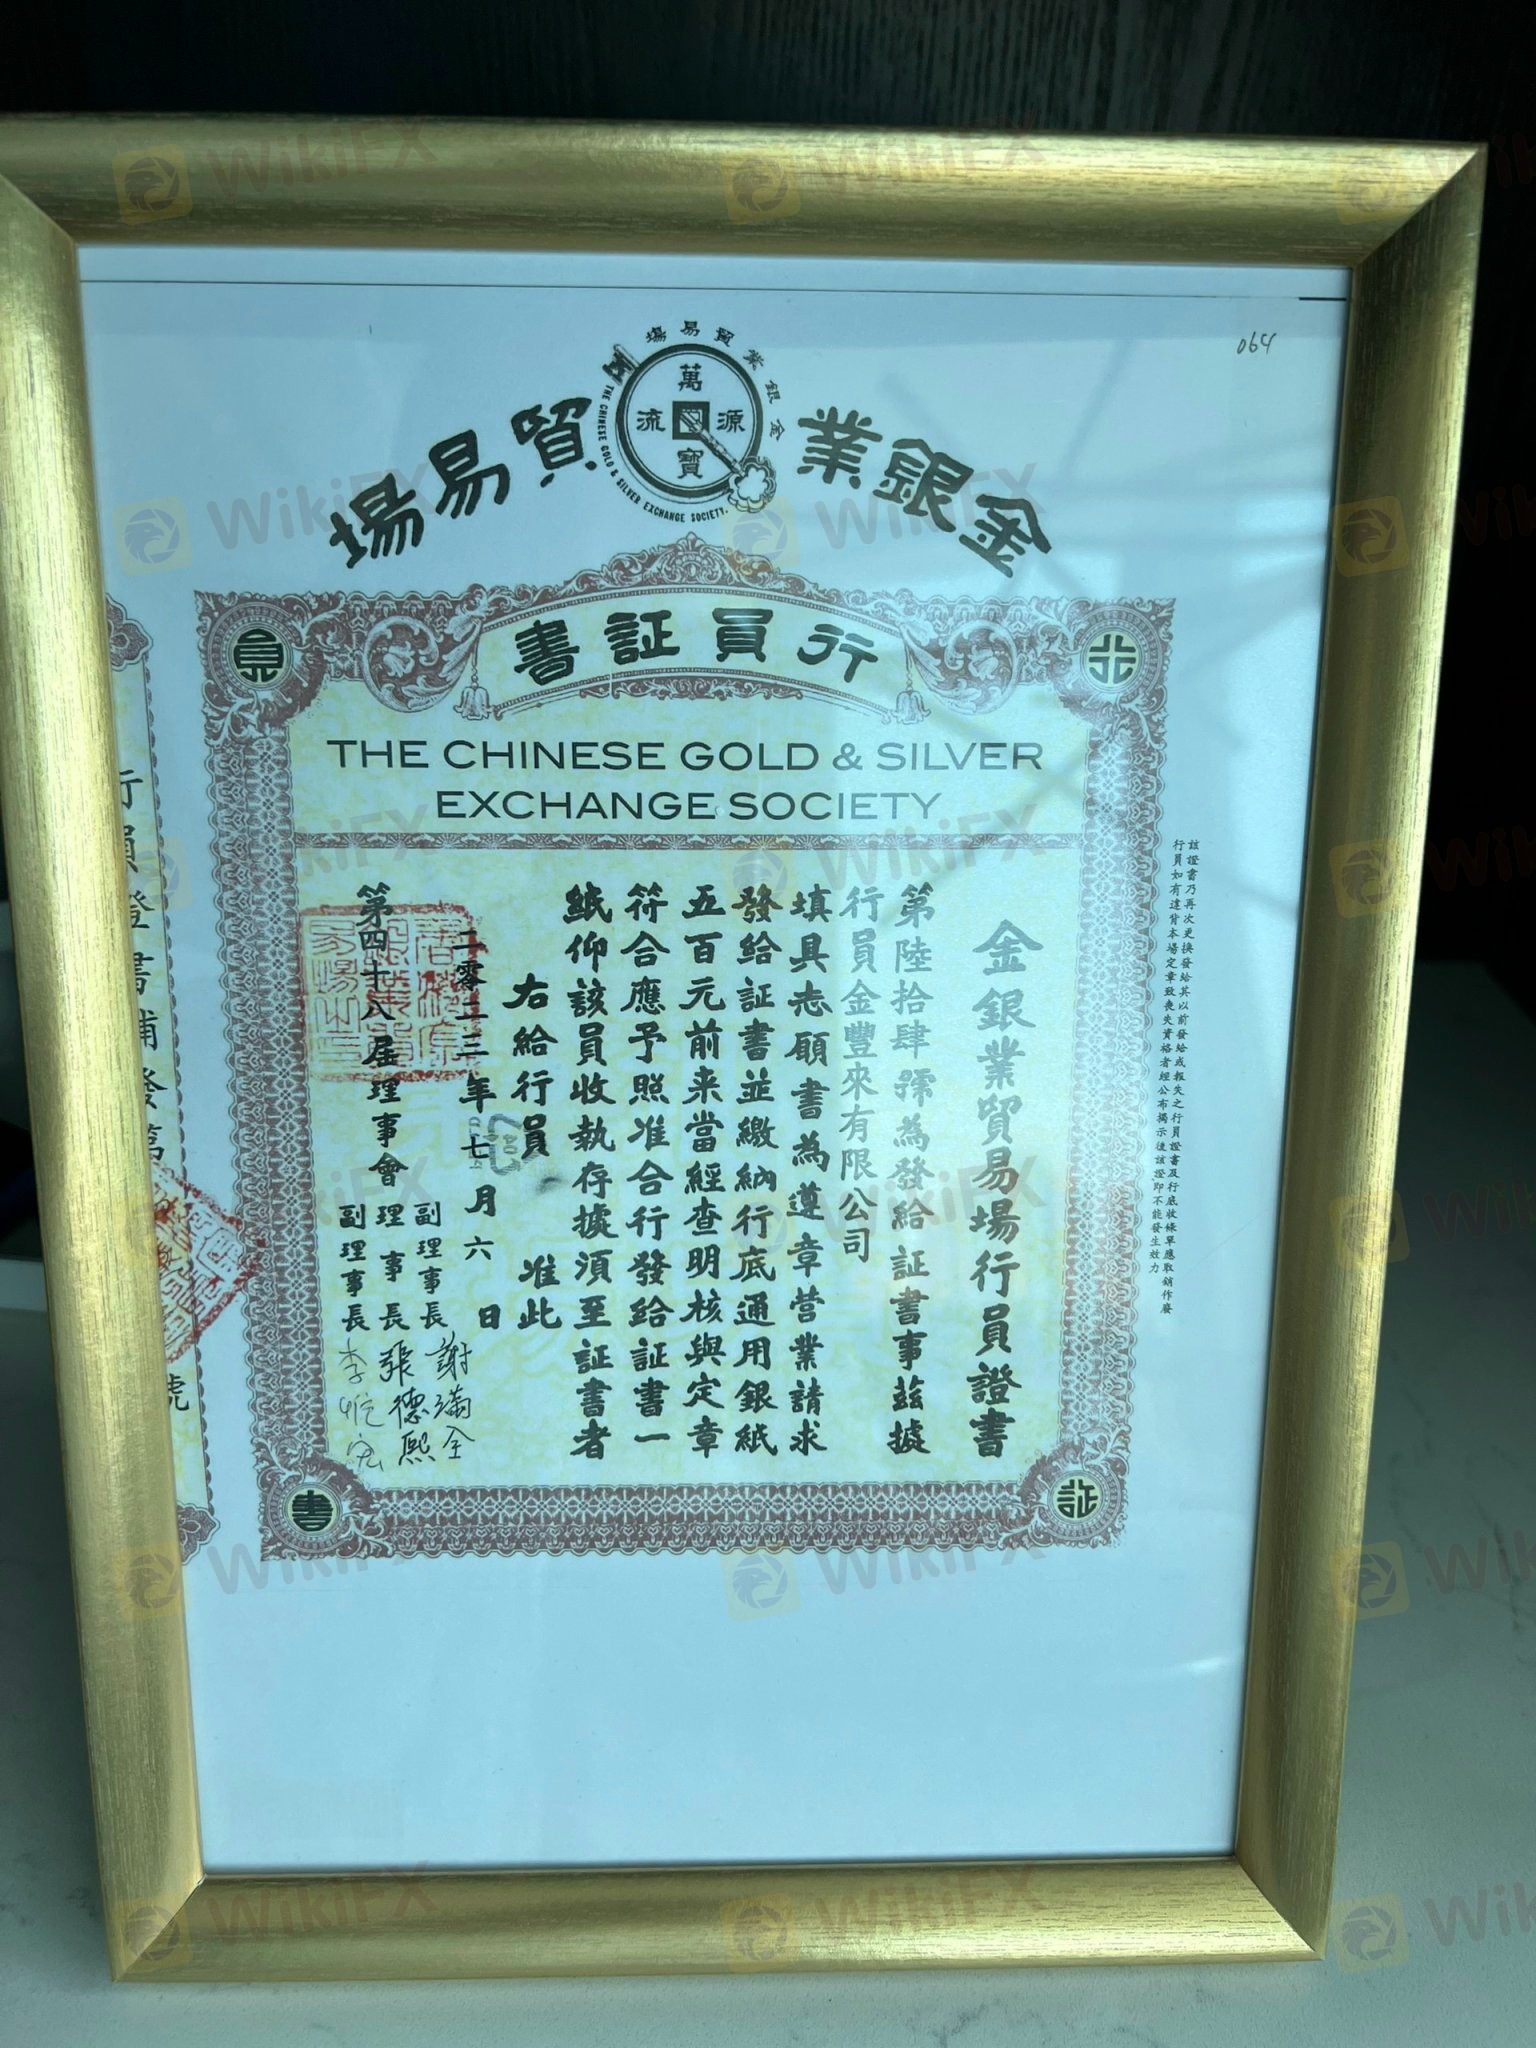 064
金銀業貿易場
金銀業貿易場
THE CHINESE GOLD & SILVER EXCHANGE SOCIETY.
萬
源
流
寶
行員証書
THE CHINESE GOLD & SILVER
EXCHANGE SOCIETY
行
員
証
書
該證書乃再次更換發給其以前發給或報失之行員證書及行底收條單應取銷作廢
行員如有違背本場定章致喪失資格者經公布揭示後該證即不能發生效力
金銀業貿易場行員證書
第陸拾肆號為發給証書事茲據
行員金豐來有限公司
填具志願書為遵章營業請求
發給証書並繳納行底通用銀紙
五百元前来當經查明核與定章
符合應予照准合行發給証書一
紙仰該員收執存據須至証書者
右給行員 准此
二零二三年七月六日
第四十八屆理事會
副理事長 謝滿全
理事長 張德熙
副理事長
號
WikiFX